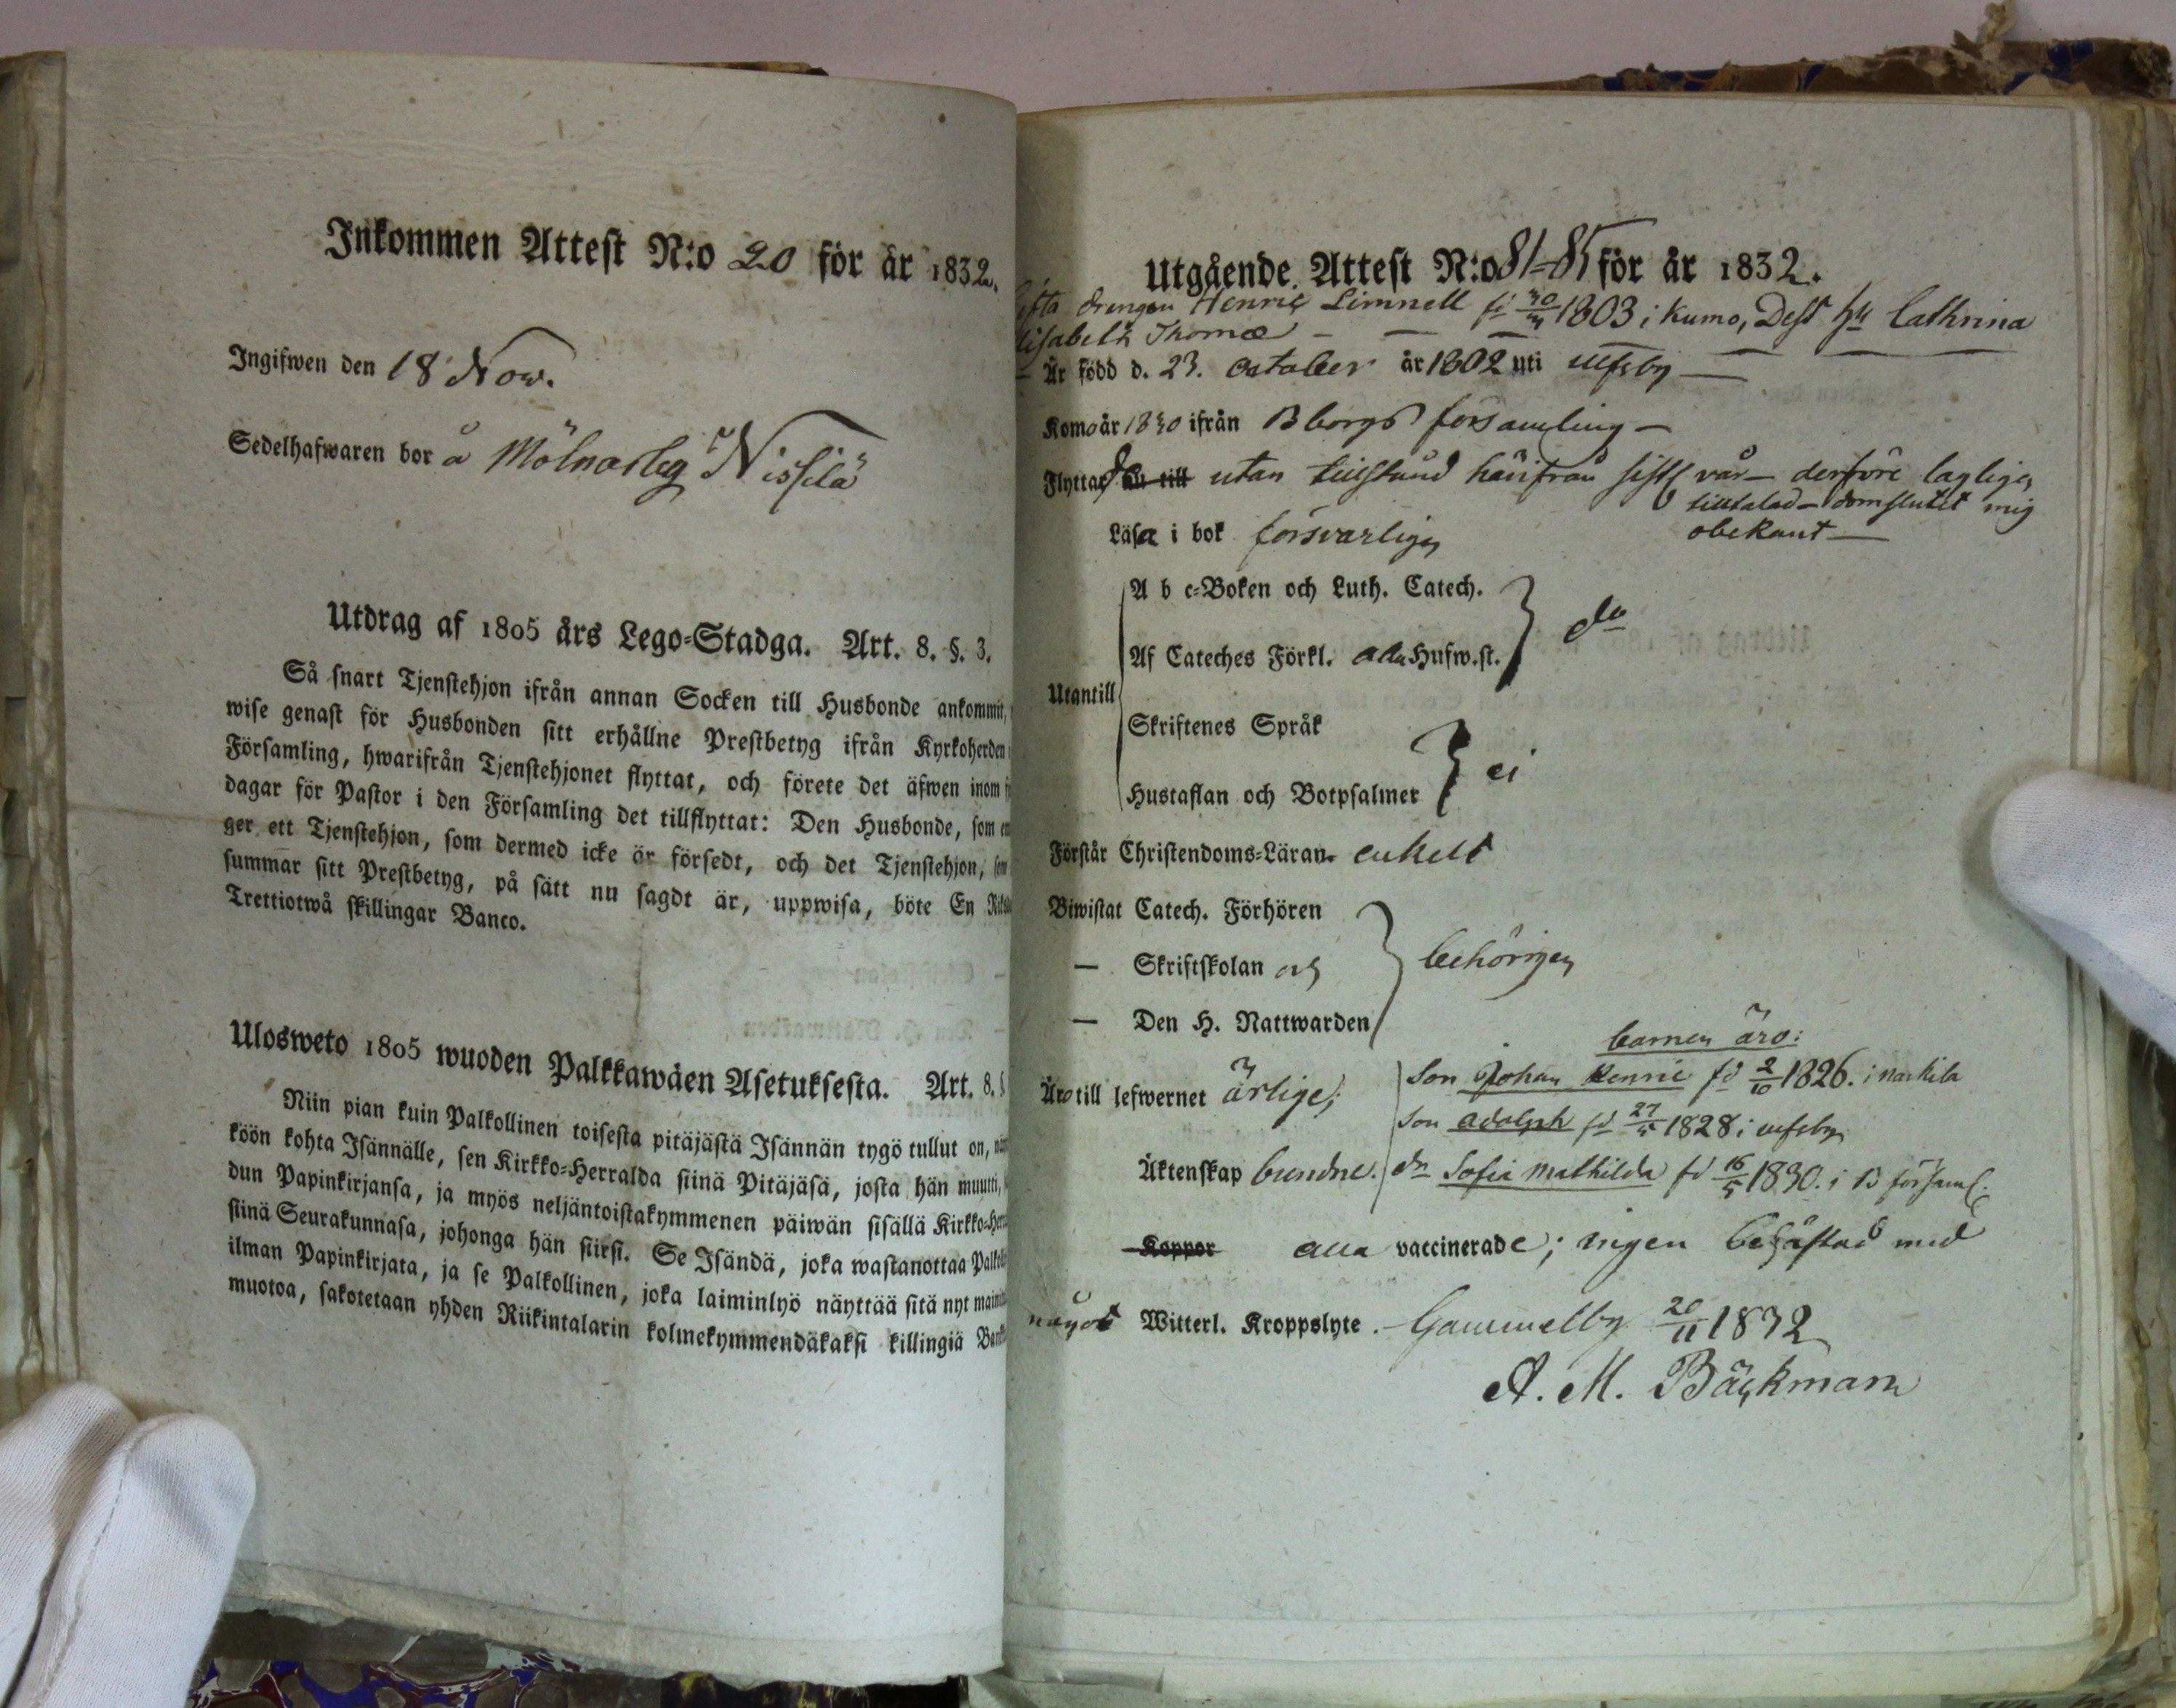 Inkommen Attest N:o 20 för år 1832.
Ingifwen den 18 Now.
Sedelhafwaren bor å Mölnarbg Nissilä
Utdrag af 1805 års Lego-Stadga. Art. 8. §. 3.
Så snart Tjenstehjon ifrån annan Socken till Husbonde ankommit,
wise genast för Husbonden sitt erhållne Prestbetyg ifrån Kyrkoherden
Församling, hwarifrån Tjenstehjonet flyttat, och förete det äfwen inom
dagar för Pastor i den Församling det tillflyttat: Den Husbonde, som
ger ett Tjenstehjon, som dermed icke är försedt, och det Tjenstehjon,
summar sitt Prestbetyg, på sätt nu sagdt är, uppwisa, böte En
Trettiotwå skillingar Banco.
Ulosweto 1805 wuoden Palkkawäen Asetuksesta. Art. 8. §
Niin pian kuin Palkollinen toisesta pitäjästä Isännän tygö tullut on,
köön kohta Isännälle, sen Kirkko-Herralda siinä Pitäjäsä, josta hän muutti,
dun Papinkirjansa, ja myös neljäntoistakymmenen päiwän sisällä Kirkko-Her
siinä Seurakunnasa, johonga hän siirsi. Se Isändä, joka wastanottaa
ilman Papinkirjata, ja se Palkollinen, joka laiminlyö näyttää sitä nyt
muotoa, sakotetaan yhden Riikintalarin kolmekymmendäkaksi killingiä
Utgående Attest N:o 81-85 för år 1832.
drengen Henric Limnell fd 30/3 1803 i Kumo, Dess hu Cathrina
lisabeth Thomæ
Är född d. 23. october år 1802 uti ulfsby
Komo år 1830 ifrån Bborgs församling
Flyttad nu till utan tillstånd härifrån sistl vår - derföre lagligen
tilltalad - domslutet mig
obekant
Läsa i bok försvarligen
A b c-Boken och Luth. Catech.
Af Cateches Förkl. alla Hufw.st.
do
Utantill
Skriftenes Språk
Hustaflan och Botpsalmer
ei
Förstår Christendoms-Läran enkelt
Biwistat Catech. Förhören
— Skriftskolan och
— Den H. Nattwarden
behörigen
barnen äro:
Äro till lefwernet ärlige;
son Johan Henric fd 2/10 1826. i
son adolph fd 27/5 1828 i ulfsby
Äktenskap bundne.
dr Sofia Mathilda fd 16/5 1830. i B förSaml.
Koppor alla vaccinerade; ingen behäftad med
något Witterl. Kroppslyte. Gammelby 20/11 1832
A. M. Bäckman